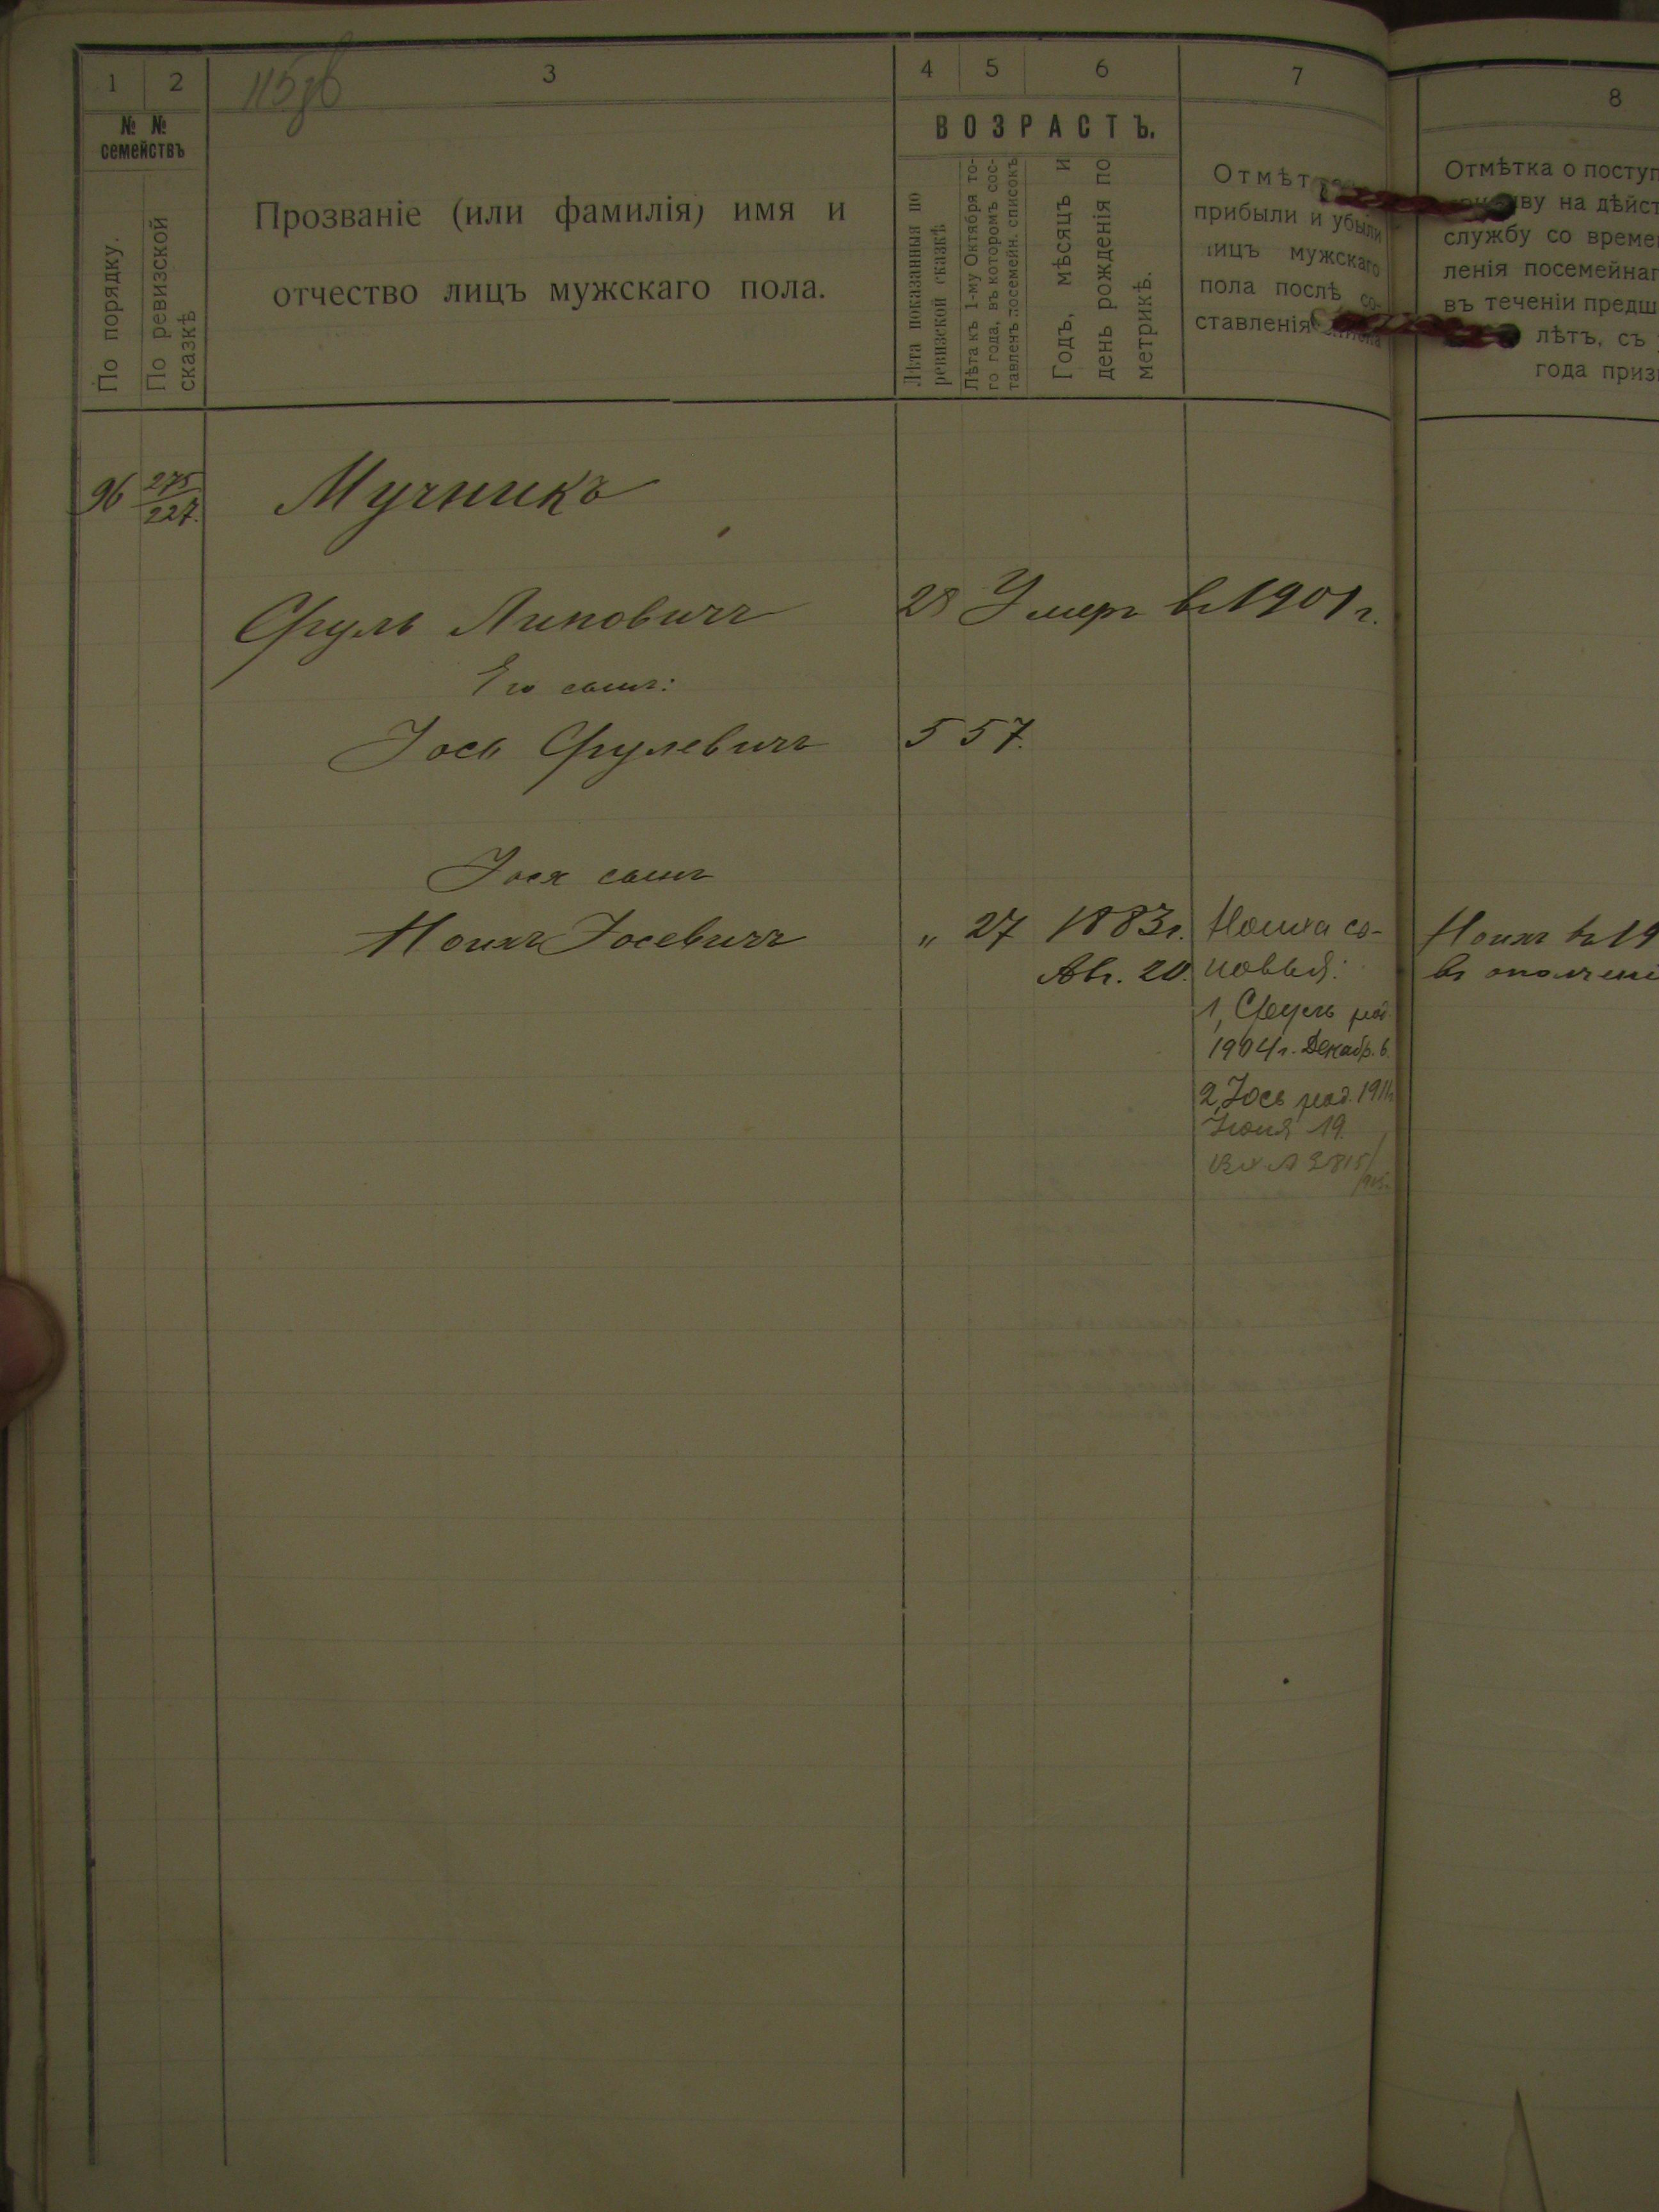 1 2 3 4 5 6 7 8
115
№ № семействъ
По порядку.
По ревизской сказкѣ
Прозваніе (или фамилія) имя и
отчество лицъ мужскаго пола.
ВОЗРАСТЪ.
Лѣта показанныя по
ревизской сказкѣ
Лѣта къ 1-му Октября то-
го года, въ которомъ сос-
тавленъ посемейн. списокъ
Годъ, мѣсяцъ и
день рожденія по
метрикѣ.
Отмѣт
прибыли и убыли
лицъ мужскаго
пола послѣ со-
ставленія списка
Отмѣтка о поступ
ыву на дѣйст
службу со време
ленія посемейнаг
въ теченіи предш
лѣтъ, съ
года приз
96 275/227. Мучникъ
Сруль Липовичъ 28 Умеръ въ 1901 г.
Его сынъ:
Іось Срулевичъ 5 57.
Іося сынъ
Ноихъ Іосевичъ „ 27 1883г. Ноиха сы-
Авг. 20. новья:
1, Сруль род.
1904 г. Декабр. 6.
2, Іось род. 1911
Іюня 19.
Вх № 2815/
Ноихъ въ 19
въ ополчені